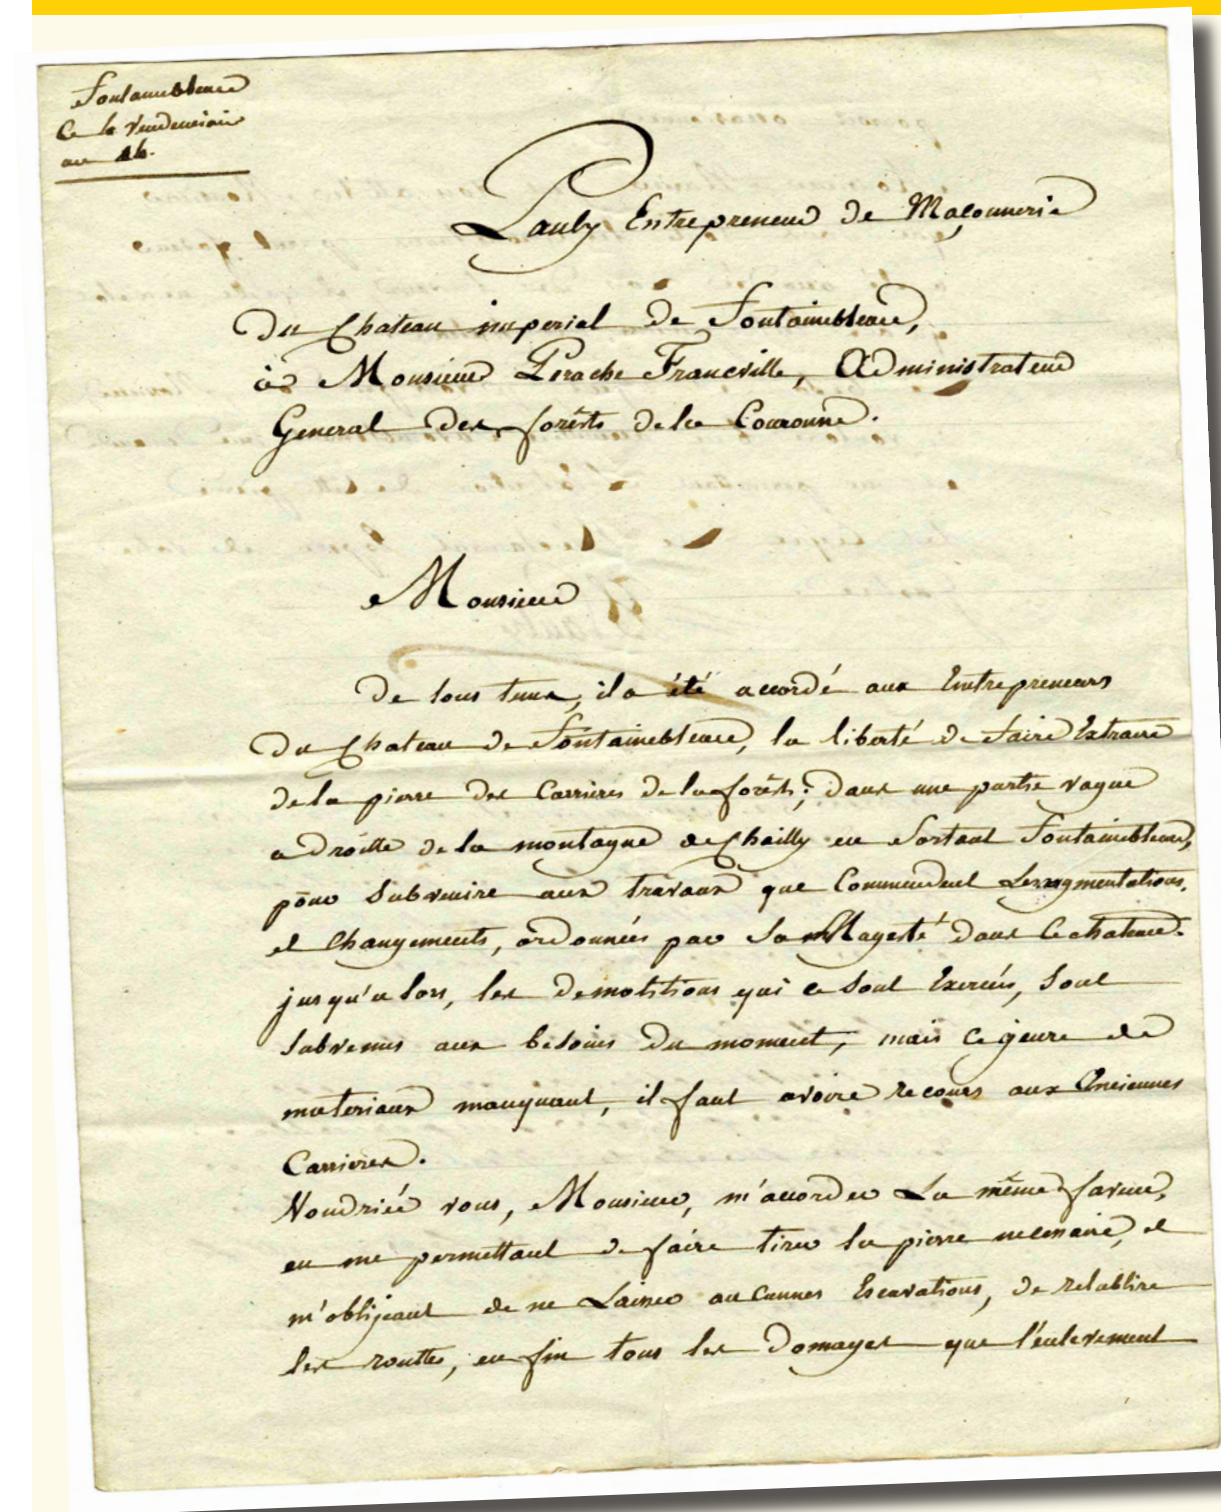 Fontainebleau
Ce le Vendemiaire
an 14.
Lauby Entrepreneur De Maçonnerie
Du Chateau imperial De Fontainebleau,
à Monsieur Perache Franville, Administrateur
General Des forêsts De la Couronne.
Monsieur
De tous tems, il a été accordé aux Entrepreneurs
Du Chateau De Fontainebleau, la liberté De faire Extraire
De la pierre Des Carrieres De la forêsts; Dans une partie vague
a Droitte De la montagne de Chailly en Sortant Fontainebleau,
pour Subvenire aux travaux que Commendent Les augmentations,
et Changements, ordonnées par Sa Magesté Dans Le chateau.
jusqu'a lors, les Demolitions qui ce Sont Exercées, Sont
Subvenues aux besoins Du moment, mais Ce genre de
materiaux manquant, il faut avoire recours aux Anciennes
Carrieres.
Voudriée vous, Monsieur, m'accorder La même faveur,
en me permettant De faire tirer la pierre necessaire, et
m'oblijeant de ne Laisser au Cunnes Escavations, De retablire
les routtes, en fin tous les Domages que l'enlevement